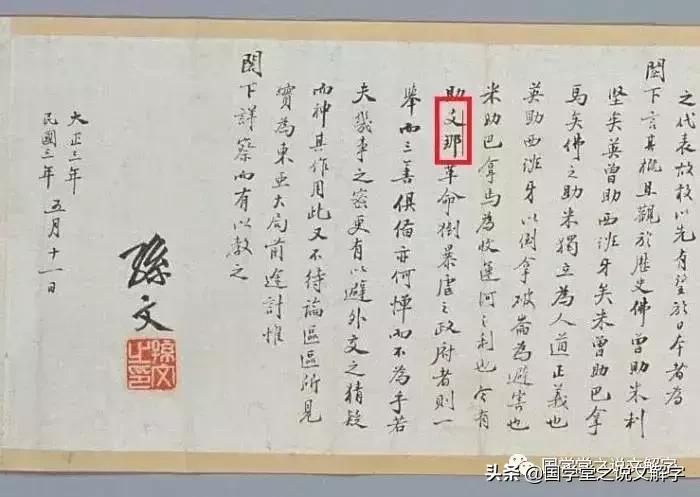 之代表故敢以先有望於日本者為
閣下言其概且觀於歷史佛曾助米利
堅矣英曾助西班牙矣米曾助巴拿
馬矣佛之助米獨立為人道正義也
英助西班牙以倒拿破崙為避害也
米助巴拿馬為收運河之利也今有
助支那革命倒暴虐之政府者則一
舉而三善俱備亦何憚而不為乎若
夫幾事之密更有以避外交之猜疑
而神其作用此又不待論區區所見
實為東亞大局前途計惟
閣下詳察而有以教之
孫文
孫文之印
大正三年
民國三年 五月十一日
国学堂之说文解字
头条 @国学堂之说文解字